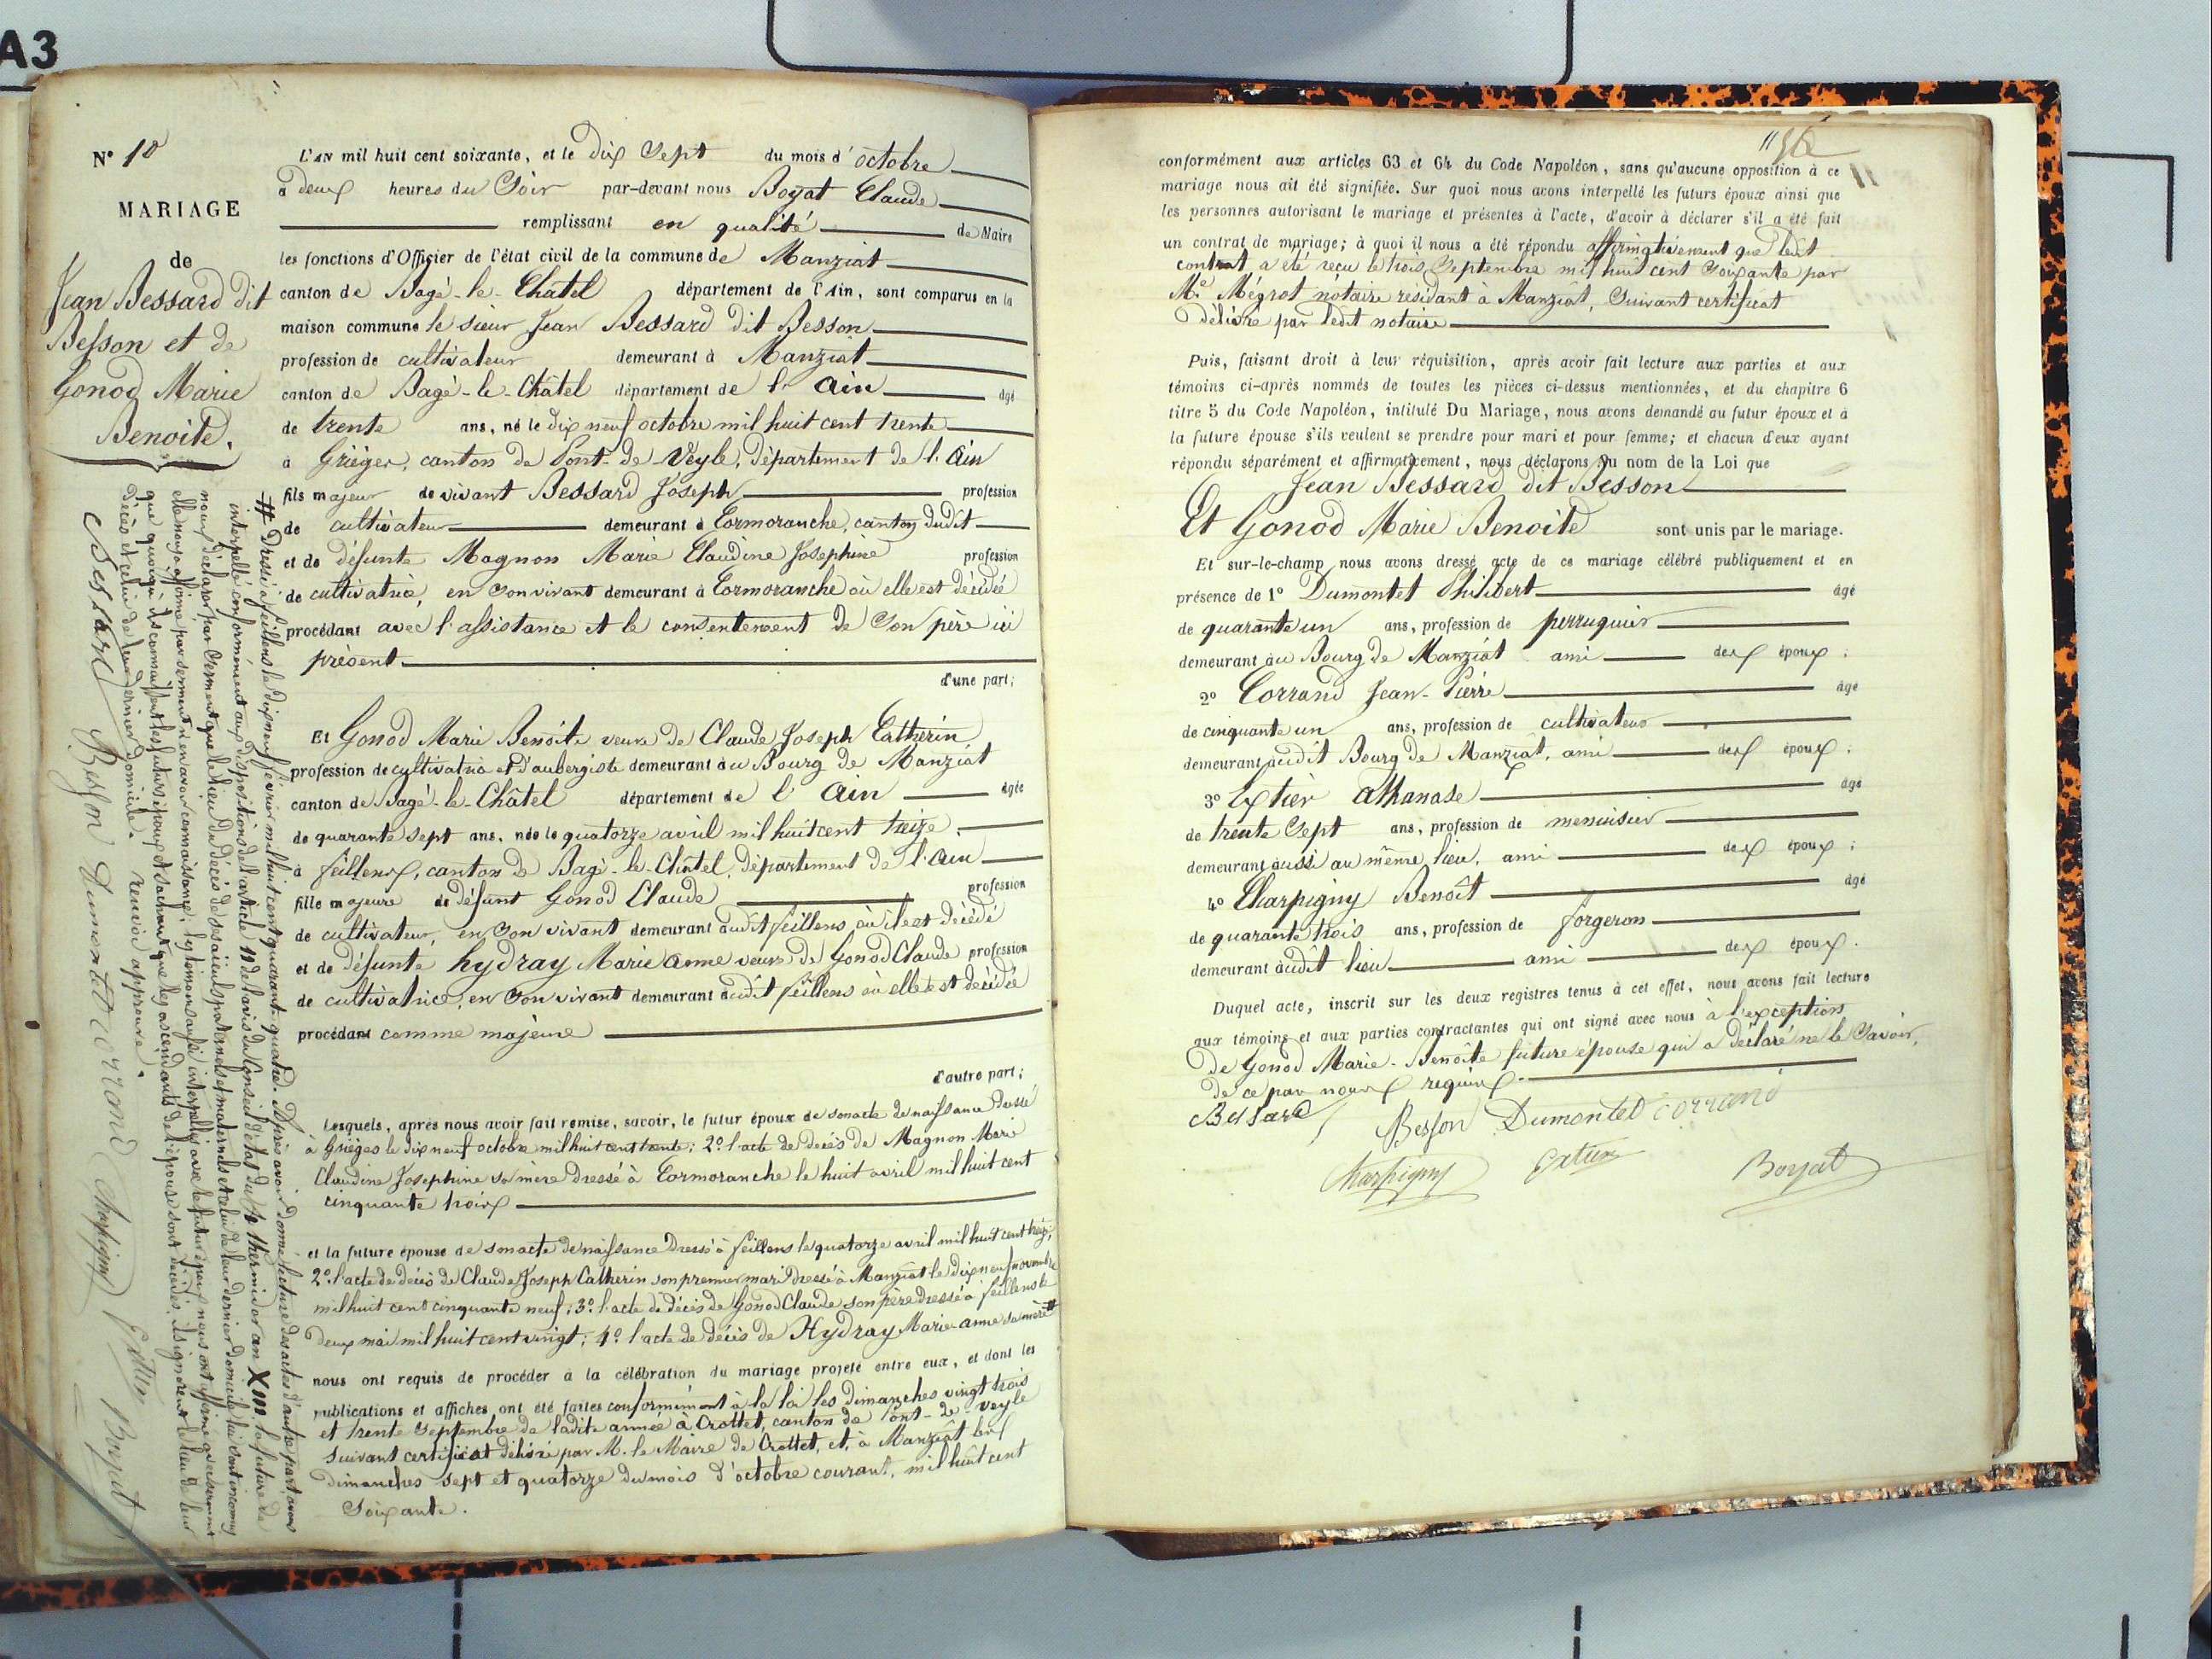 A3
N° 10
MARIAGE
de
Jean Bessard dit
Besson et de
Gonod Marie
Benoite.
L'AN mil huit cent soixante, et le dix Sept du mois d'octobre
à deux heures du Soir par-devant nous Boyat Claude
remplissant en qualité de Maire
les fonctions d'Officier de l'état civil de la commune de Manziat
canton de Bagé-le-Châtel département de l'Ain, sont comparus en la
maison commune le sieur Jean Bessard dit Besson
profession de cultivateur demeurant à Manziat
canton de Bagé-le-Châtel département de l'Ain âgé
de trente ans, né le dix neuf octobre mil huit cent trente
à Grièges, canton de Pont-de-Veyle, département de l'Ain
fils majeur de vivant Bessard Joseph profession
de cultivateur demeurant à Cormoranche, canton dudit
et de défunte Magnon Marie Claudine Josephine profession
de cultivatrice, en Son vivant demeurant à Cormoranche où elle est décédée
procédant avec l'assistance et le consentement de Son père ici
présent
d'une part;
Et Gonod Marie Benoite veuve de Claude Joseph Catherin
profession de cultivatrice et d'aubergiste demeurant au Bourg de Manziat
canton de Bagé-le-Châtel département de l'Ain âgée
de quarante sept ans, née le quatorze avril mil huit cent treize
à feillens, canton de Bagé-le-Châtel, département de l'Ain
fille majeure de défunt Gonod Claude profession
de cultivateur, en Son vivant demeurant audit feillens où il est décédé
et de défunte hydray Marie anne veuve de Gonod Claude profession
de cultivatrice, en Son vivant demeurant audit feillens où elle est décédée
procédant comme majeure
d'autre part;
Lesquels, après nous avoir fait remise, savoir, le futur époux de son acte de naissance Dressé
à Grièges le dix neuf octobre mil huit cent trente; 2° l'acte de décès de Magnon Marie
Claudine Josephine sa mère dressé à Cormoranche le huit avril mil huit cent
cinquante trois
et la future épouse de son acte de naissance Dressé à feillens le quatorze avril mil huit cent treize;
2° l'acte de décès de Claude Joseph Catherin son premier mari dressé à Manziat le dix neuf novembre
mil huit cent cinquante neuf; 3° l'acte de décès de Gonod Claude son père dressé à feillens le
deux mai mil huit cent vingt; 4° l'acte de décès de Hydray Marie-anne sa mère #
nous ont requis de procéder à la célébration du mariage projeté entre eux, et dont les
publications et affiches ont été faites conformément à la loi les dimanches vingt trois
et trente Septembre de ladite année à Crottet, canton de Pont-de-Veyle
suivant certificat délivré par M. le Maire de Crottet, et, à Manziat les
dimanches sept et quatorze du mois d'octobre courant, mil huit cent
Soixante.
# Dressé à feillens le dix neuf février mil huit cent quarante quatre. Après avoir donné lecture des actes d'autre part avons
interpellé conformément aux dispositions de l'article 11 de l'avis du Conseil d'état du 4 thermidor an XIII la future de
nous déclarer par serment que le lieu du décès de ses aïeuls paternels et maternels et celui de leur dernier domicile lui sont inconnus
elle nous a affirmé par serment n'en avoir connaissance; les témoins aussi interpellés avec le futur époux nous ont affirmé avec serment
que quoiqu'ils connaissent les futurs époux et sachant que les ascendants de l'épouse sont décédés, ils ignorent le lieu de leur
décès et celui de leur dernier domicile. renvoi approuvé.
Bessard Besson Dumontet corrand Charpigny Extier Boyat
conformément aux articles 63 et 64 du Code Napoléon, sans qu'aucune opposition à ce
mariage nous ait été signifiée. Sur quoi nous avons interpellé les futurs époux ainsi que
les personnes autorisant le mariage et présentes à l'acte, d'avoir à déclarer s'il a été fait
un contrat de mariage; à quoi il nous a été répondu affirmativement que ledit
contrat a été reçu le trois Septembre mil huit cent Soixante par
Me Mégrot notaire residant à Manziat, Suivant certificat
délivré par ledit notaire
Puis, faisant droit à leur réquisition, après avoir fait lecture aux parties et aux
témoins ci-après nommés de toutes les pièces ci-dessus mentionnées, et du chapitre 6
titre 5 du Code Napoléon, intitulé Du Mariage, nous avons demandé au futur époux et à
la future épouse s'ils veulent se prendre pour mari et pour femme; et chacun d'eux ayant
répondu séparément et affirmativement, nous déclarons au nom de la Loi que
Jean Bessard dit Besson
Et Gonod Marie Benoite sont unis par le mariage.
Et sur-le-champ nous avons dressé acte de ce mariage célébré publiquement et en
présence de 1° Dumontet Philibert âgé
de quarante un ans, profession de perruquier
demeurant au Bourg de Manziat ami des époux;
2° Corrand Jean-Pierre âgé
de cinquante un ans, profession de cultivateur
demeurant audit Bourg de Manziat, ami des époux;
3° Extier athanase âgé
de trente Sept ans, profession de menuisier
demeurant aussi au même lieu, ami des époux;
4° Charpigny Benoît âgé
de quarante trois ans, profession de forgeron
demeurant audit lieu ami des époux.
Duquel acte, inscrit sur les deux registres tenus à cet effet, nous avons fait lecture
aux témoins et aux parties contractantes qui ont signé avec nous à l'exception
de Gonod Marie-Benoîte future épouse qui a déclaré ne le Savoir,
de ce par nous requis.
Bessard Besson Dumontet corrand
Charpigny Extier Boyat